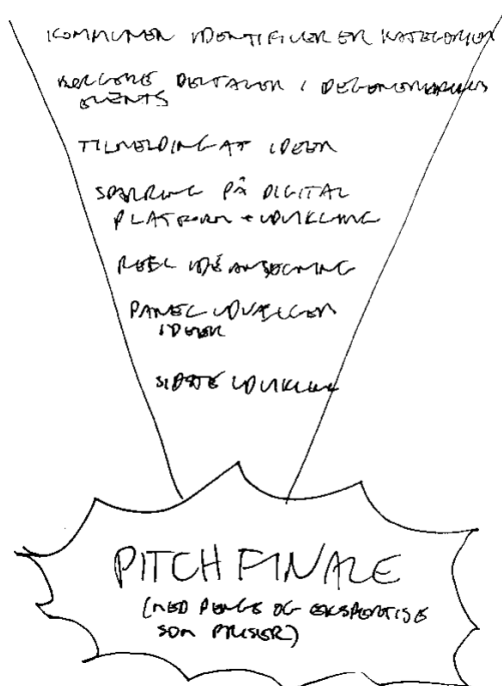 KOMMUNEN IDENTIFICERER KATEGORIER
BORGERE DELTAGER I
EVENTS
TILMELDING AF IDEER
SPARRING PÅ DIGITAL
PLATFORM + UDVIKLING
REEL IDÉANSØGNING
PANEL UDVÆLGER
IDEER
SIDSTE UDVIKLING
PITCH FINALE
(MED PENGE OG EKSPERTISE
SOM PRISER)